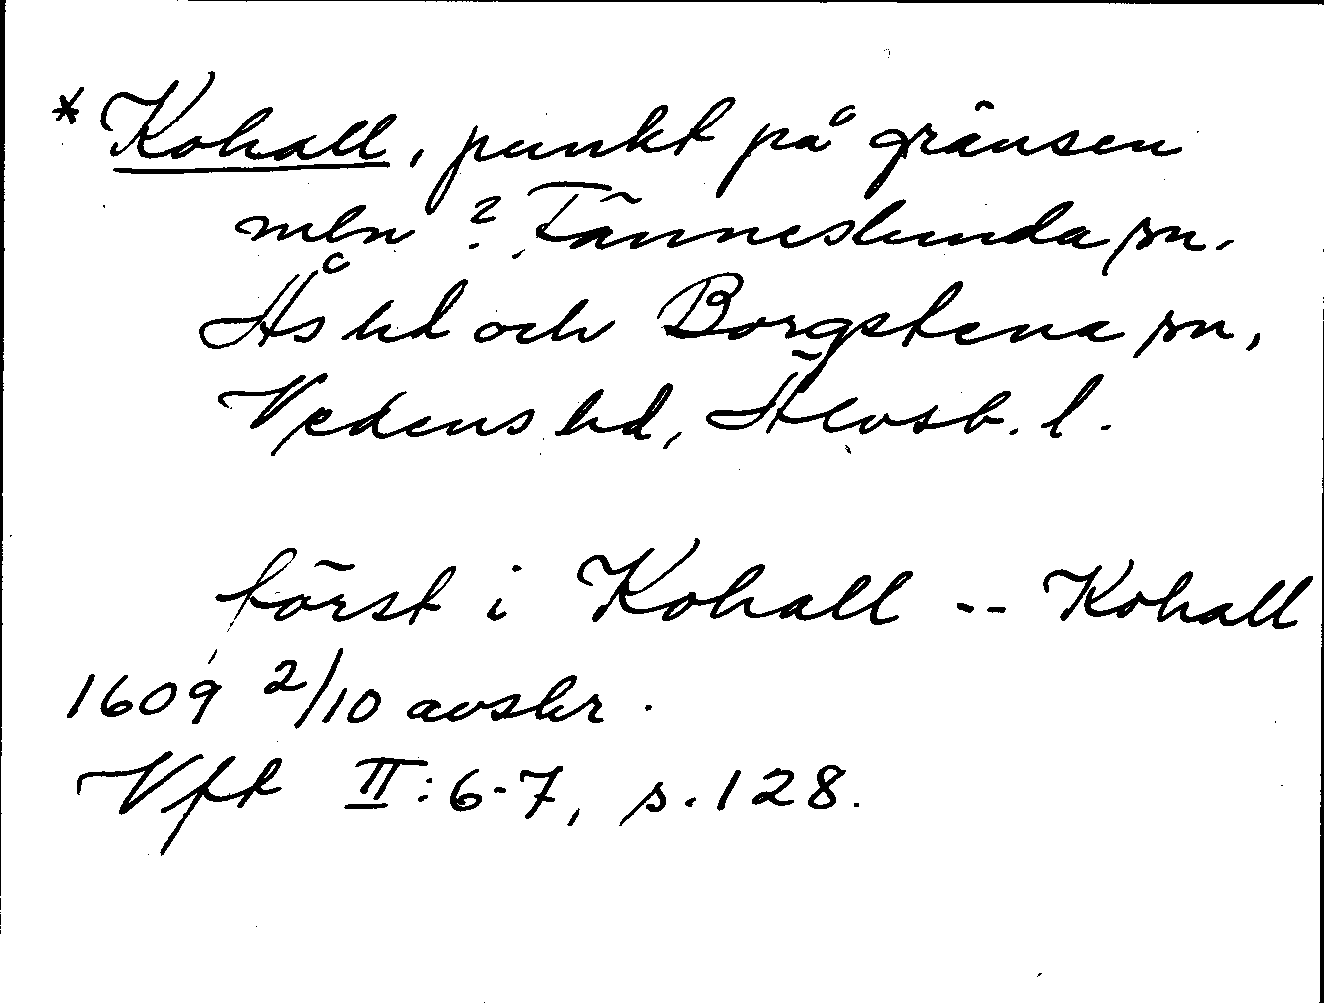 * Kohall, punkt på gränsen
mln ? Tänneslunda sn.
Ås hd och Borgstena sn,
Vedens hd, Älvsb. l.
först i Kohall -- Kohall
1609 2/10 avskr.
Vft II:6-7, s.128.